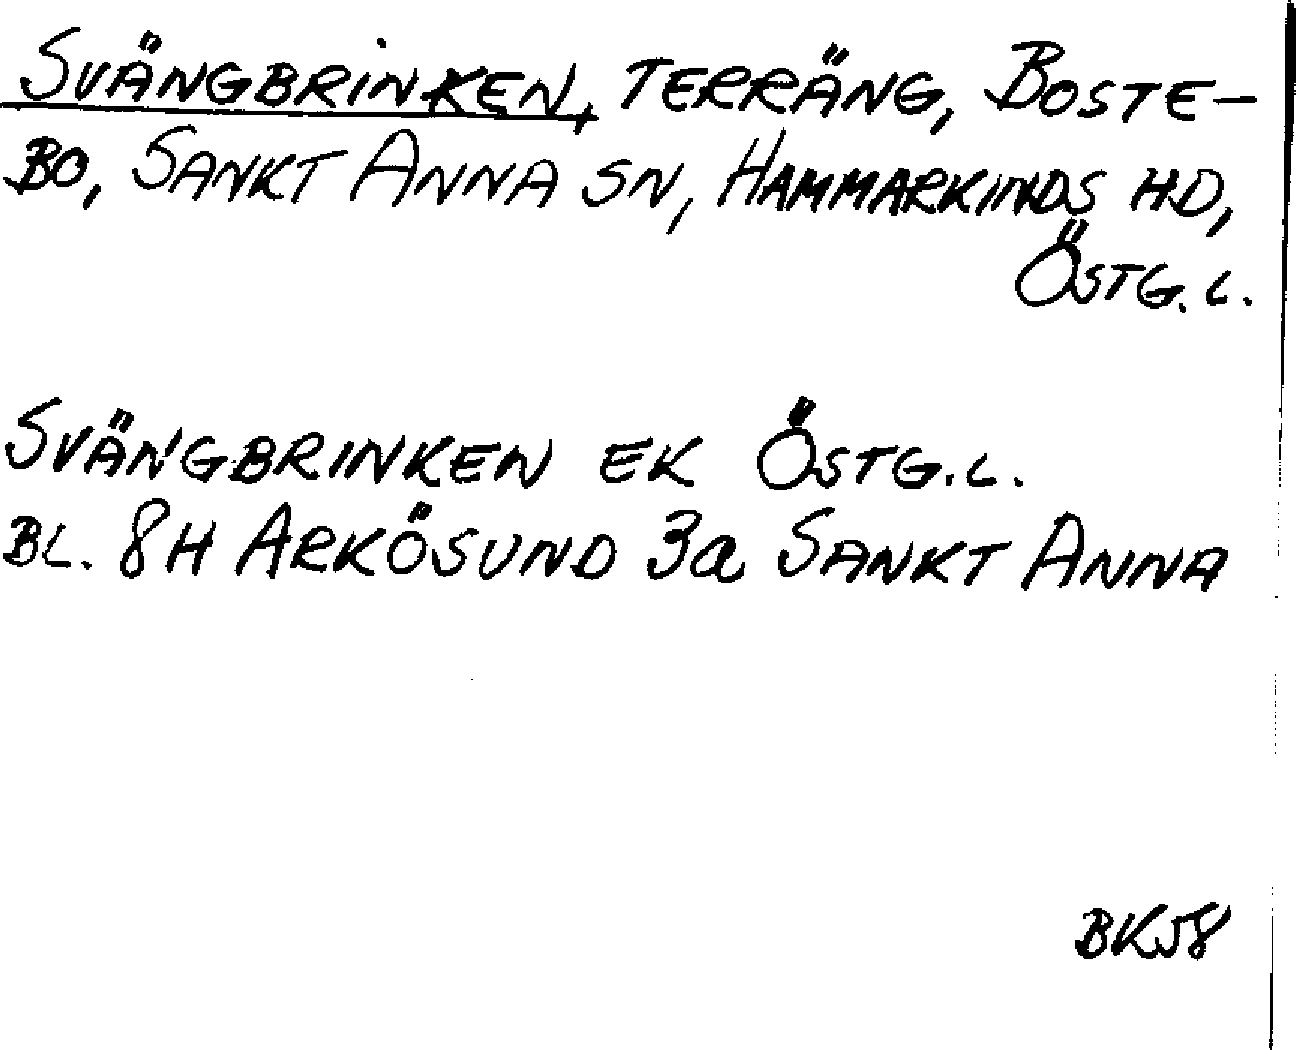 SVÄNGBRINKEN, TERRÄNG, BOSTE-
BO, SANKT ANNA SN, HAMMARKINDS HD,
ÖSTG. L.
SVÄNGBRINKEN EK ÖSTG.L.
BL. 8H ARKÖSUND 3a SANKT ANNA
BK58